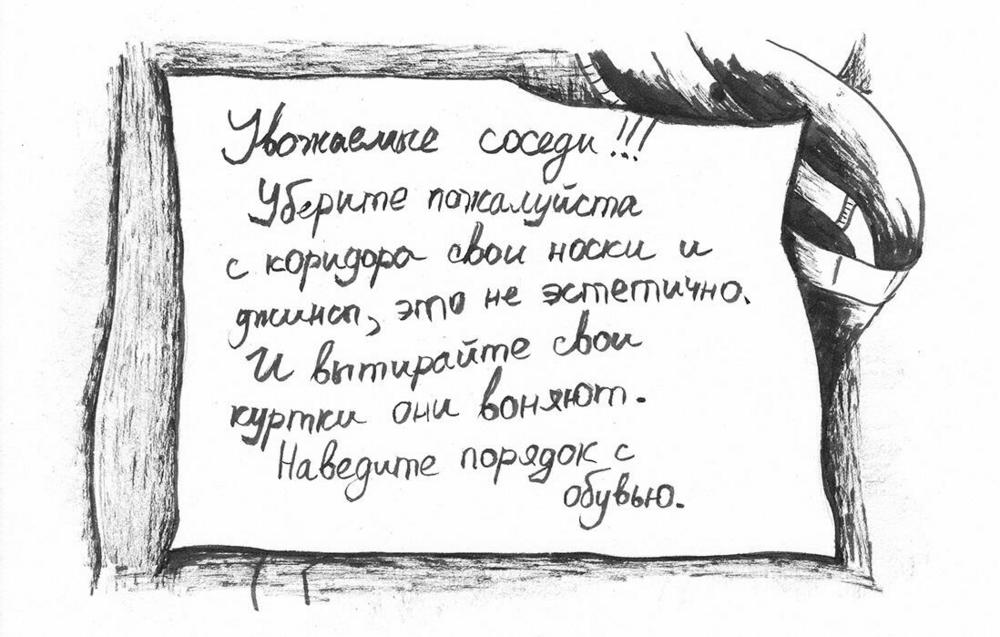 Уважаемые соседи!!!
Уберите пожалуйста
с коридора свои носки и
джинсы, это не эстетично.
И вытирайте свои
куртки они воняют.
Наведите порядок с
обувью.